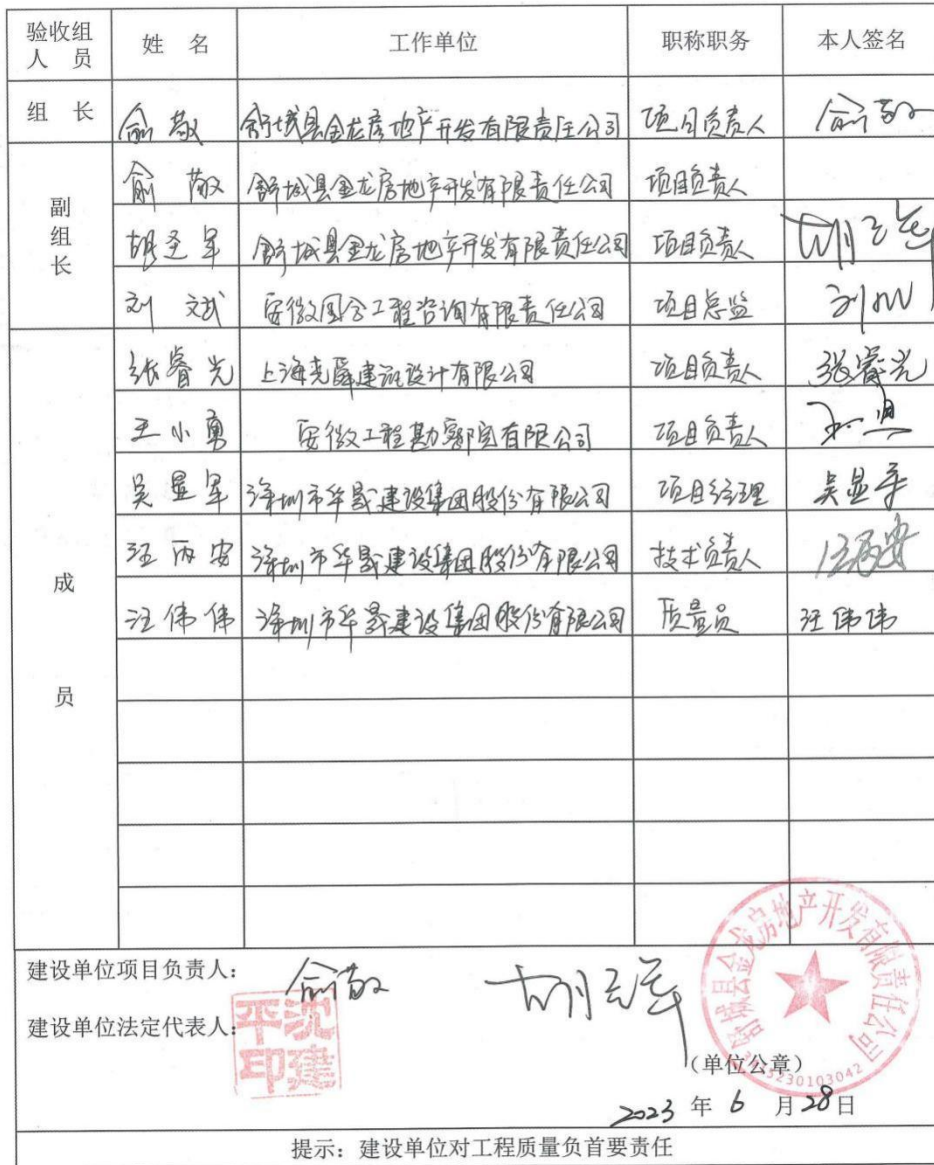 验收组人员 姓 名 工作单位 职称职务 本人签名
组 长 俞敬 舒城县金龙房地产开发有限责任公司 项目负责人 俞敬
副组长 俞敬 舒城县金龙房地产开发有限责任公司 项目负责人
胡圣军 舒城县金龙房地产开发有限责任公司 项目负责人
刘斌 安徽国合工程咨询有限责任公司 项目总监
成员 张睿光 上海尧舜建筑设计有限公司 项目负责人 张睿光
王小勇 安徽工程勘察院有限公司 项目负责人
吴显军 深圳市华晟建设集团股份有限公司 项目经理 吴显军
汪丙安 深圳市华晟建设集团股份有限公司 技术负责人 汪丙安
汪伟伟 深圳市华晟建设集团股份有限公司 质量员 汪伟伟
建设单位项目负责人: 俞敬
建设单位法定代表人: 沈建平印
舒城县金龙房地产开发有限责任公司
(单位公章)
2023 年 6 月 28 日
提示:建设单位对工程质量负首要责任